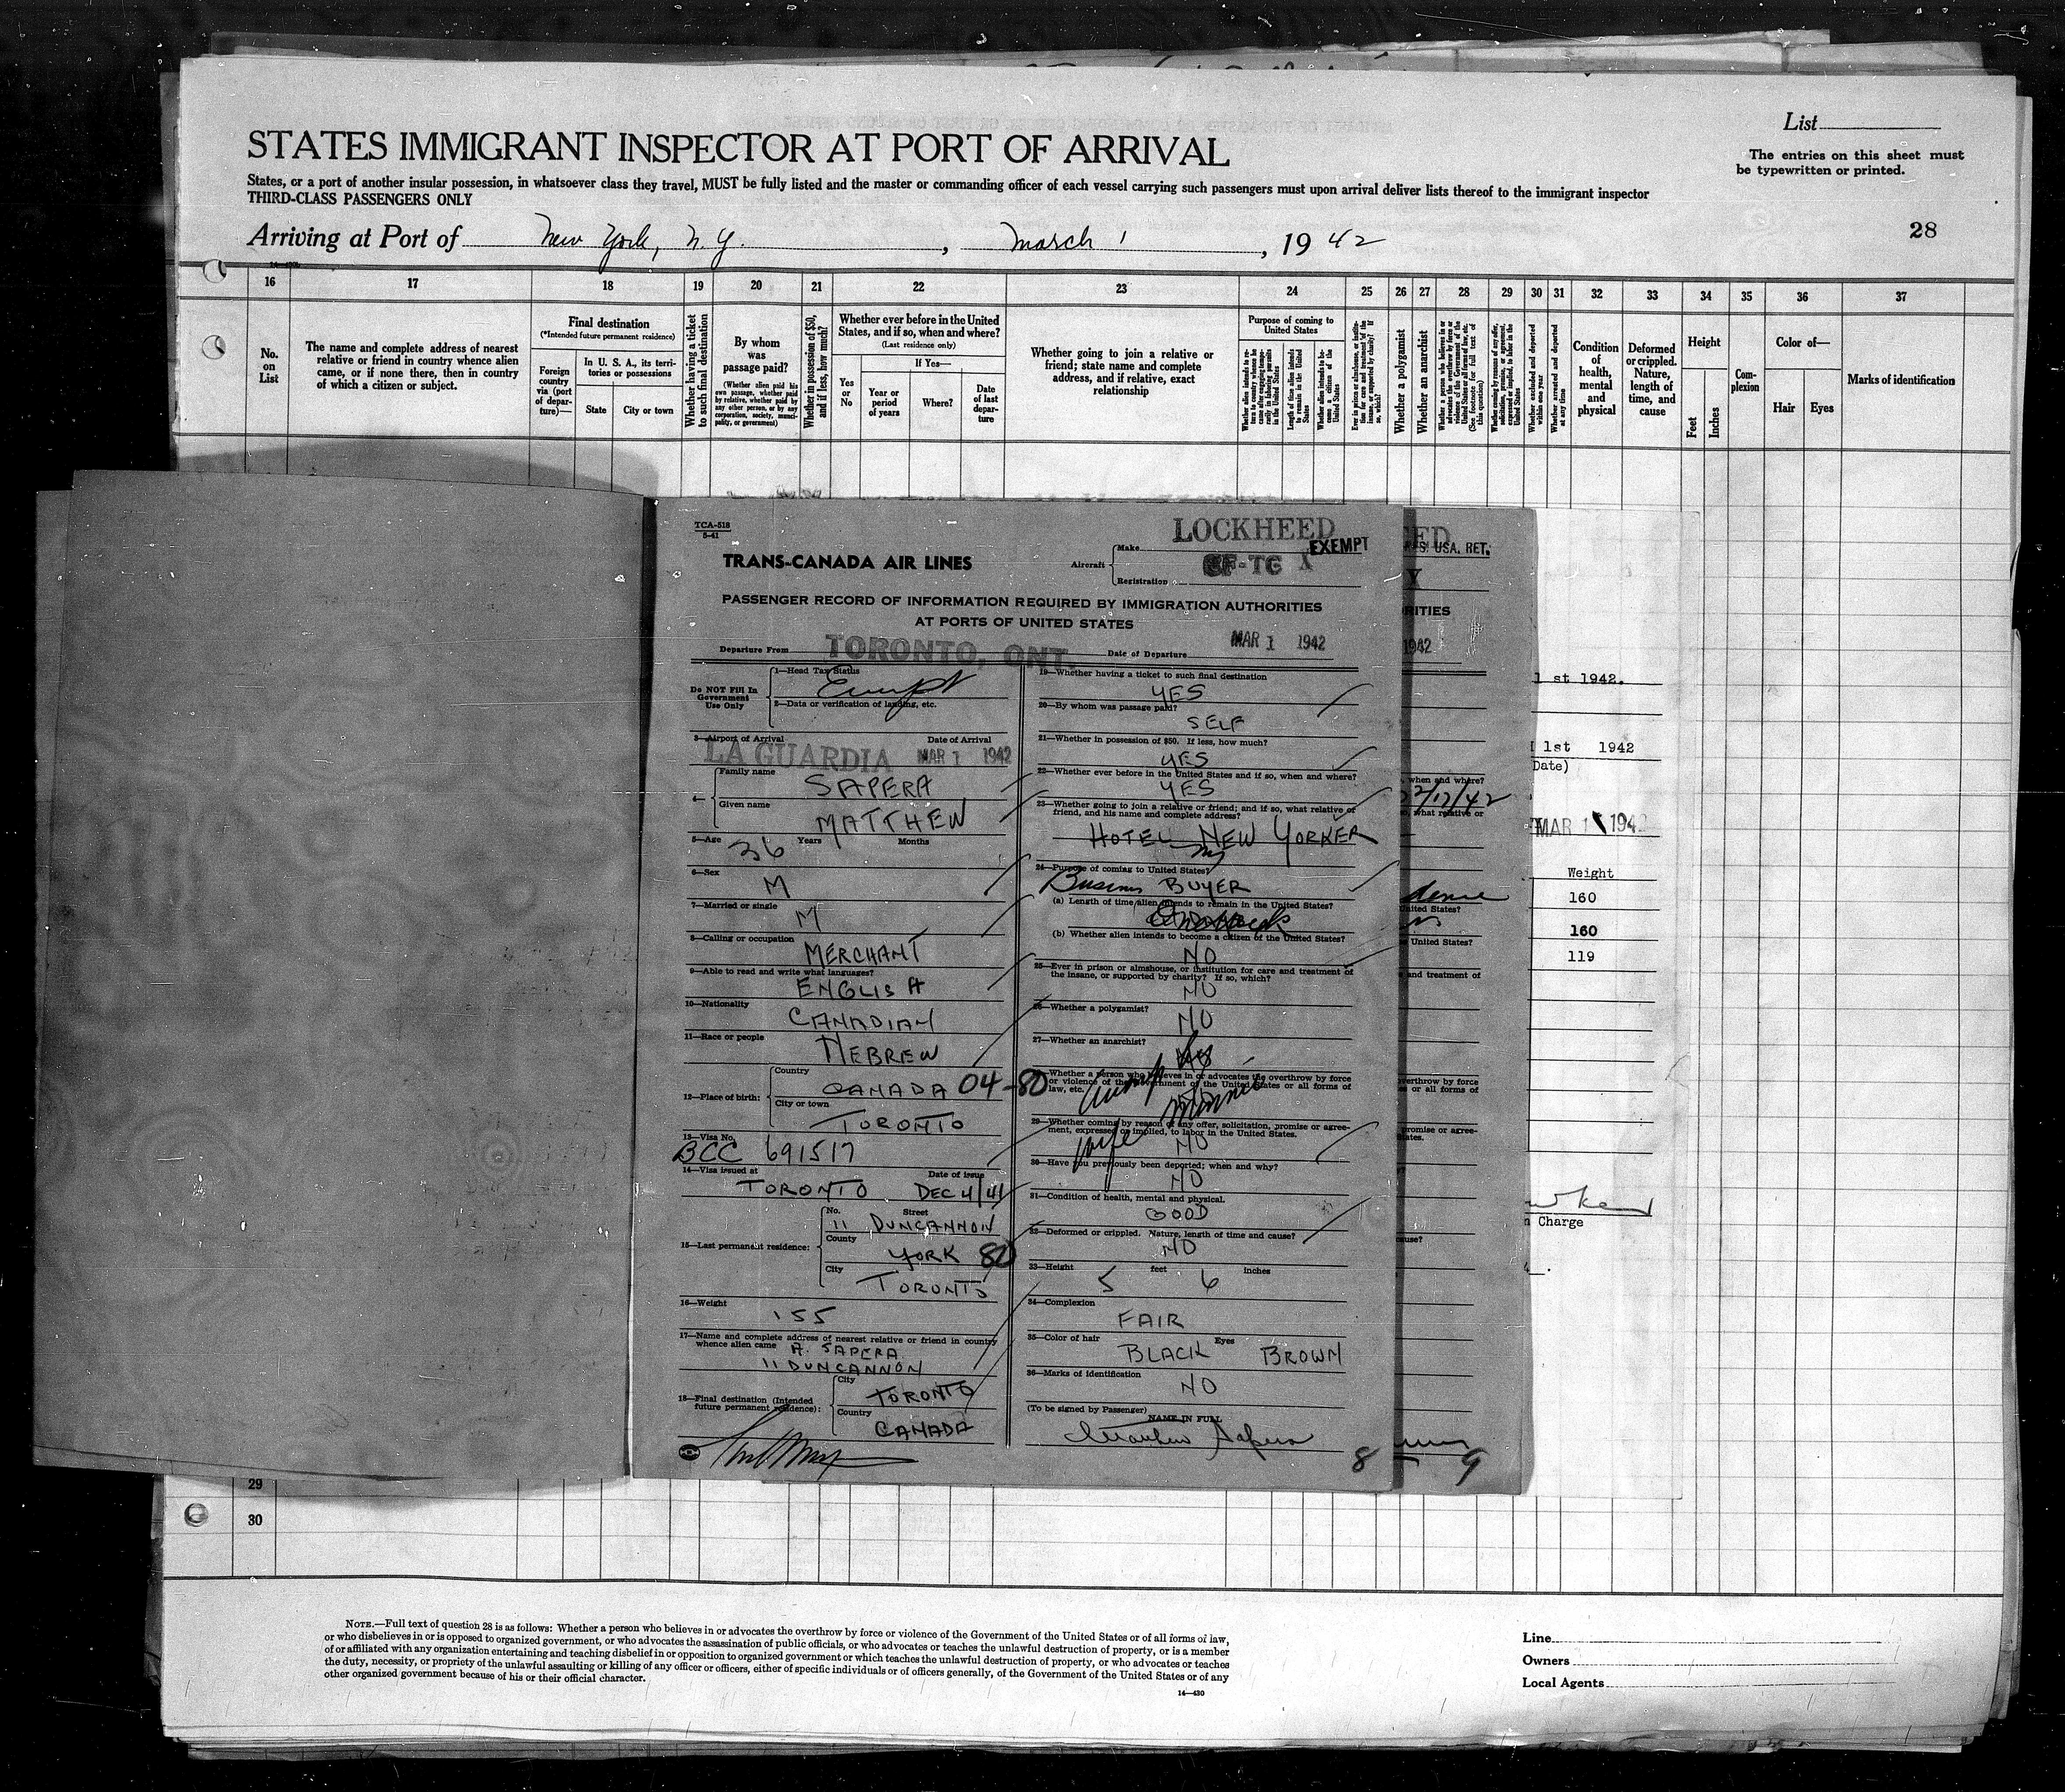 List
STATES IMMIGRANT INSPECTOR AT PORT OF ARRIVAL
The entries on this sheet must
be typewritten or printed.
States, or a port of another insular possession, in whatsoever class they travel, MUST be fully listed and the master or commanding officer of each vessel carrying such passengers must upon arrival deliver lists thereof to the immigrant inspector
THIRD-CLASS PASSENGERS ONLY
Arriving at Port of New York, N.Y., March 1, 1942
28
16 17 18 19 20 21 22 23 24 25 26 27 28 29 30 31 32 33 34 35 36 37
No. on List
The name and complete address of nearest
relative or friend in country whence alien
came, or if none there, then in country
of which a citizen or subject.
Final destination
(*Intended future permanent residence)
Foreign
country
via (port
of depar-
ture)—
In U. S. A., its terri-
tories or possessions
State
City or town
Whether having a ticket
to such final destination
By whom
was
passage paid?
(Whether alien paid his
own passage, whether paid
by relative, whether paid
by any other person, or by any
corporation, society, munici-
pality, or government)
Whether in possession of $50,
and if less, how much?
Whether ever before in the United
States, and if so, when and where?
(Last residence only)
Yes
or
No
If Yes—
Year or
period
of years
Where?
Date
of last
depar-
ture
Whether going to join a relative or
friend; state name and complete
address, and if relative, exact
relationship
Purpose of coming to
United States
Whether a polygamist
Whether an anarchist
Condition
of
health,
mental
and
physical
Deformed
or crippled.
Nature,
length of
time, and
cause
Height
Feet
Inches
Com-
plexion
Color of—
Hair
Eyes
Marks of identification
TCA-518
5-41
TRANS-CANADA AIR LINES
Aircraft
Make LOCKHEED
EXEMPT
Registration CF-TC X
PASSENGER RECORD OF INFORMATION REQUIRED BY IMMIGRATION AUTHORITIES
AT PORTS OF UNITED STATES
Departure From TORONTO, ONT. Date of Departure MAR 1 1942
Do NOT Fill In
Government
Use Only
1—Head Tax Status
Exempt
2—Data or verification of landing, etc.
3—Airport of Arrival Date of Arrival
LA GUARDIA MAR 1 1942
4—
Family name
SAPERA
Given name
MATTHEW
5—Age 36 Years Months
6—Sex
M
7—Married or single
M
8—Calling or occupation
MERCHANT
9—Able to read and write what languages?
ENGLISH
10—Nationality
CANADIAN
11—Race or people
HEBREW
12—Place of birth:
Country
CANADA 04-80
City or town
TORONTO
13—Visa No.
BCC 691517
14—Visa issued at Date of issue
TORONTO DEC 4/41
15—Last permanent residence:
No. Street
11 DUNCANNON
County
YORK 80
City
TORONTO
16—Weight
155
17—Name and complete address of nearest relative or friend in country
whence alien came A. SAPERA
11 DUNCANNON
18—Final destination (Intended
future permanent residence):
City
TORONTO
Country
CANADA
19—Whether having a ticket to such final destination
YES
20—By whom was passage paid?
SELF
21—Whether in possession of $50. If less, how much?
YES
22—Whether ever before in the United States and if so, when and where?
YES
23—Whether going to join a relative or friend; and if so, what relative or
friend, and his name and complete address?
HOTEL NEW YORKER
NY
24—Purpose of coming to United States?
Business BUYER
(a) Length of time alien intends to remain in the United States?
(b) Whether alien intends to become a citizen of the United States?
NO
25—Ever in prison or almshouse, or institution for care and treatment of
the insane, or supported by charity? If so, which?
NO
26—Whether a polygamist?
NO
27—Whether an anarchist?
NO
28—Whether a person who believes in or advocates the overthrow by force
or violence of the Government of the United States or all forms of
law, etc.
wife Minnie
29—Whether coming by reason of any offer, solicitation, promise or agree-
ment, expressed or implied, to labor in the United States.
NO
30—Have you previously been deported; when and why?
NO
31—Condition of health, mental and physical.
GOOD
32—Deformed or crippled. Nature, length of time and cause?
NO
33—Height 5 feet 6 inches
34—Complexion
FAIR
35—Color of hair Eyes
BLACK BROWN
36—Marks of identification
NO
(To be signed by Passenger)
NAME IN FULL
Matthew Sapera
8
USA. RET.
X
RITIES
1942
when and where?
22/12/42
so, what relative or
United States?
United States?
and treatment of
overthrow by force
or all forms of
promise or agree-
tates.
ause?
9
1 st 1942.
1st 1942
Date)
MAR 1 1942
Weight
160
160
119
n Charge
29
30
NOTE.—Full text of question 28 is as follows: Whether a person who believes in or advocates the overthrow by force or violence of the Government of the United States or of all forms of law,
or who disbelieves in or is opposed to organized government, or who advocates the assassination of public officials, or who advocates or teaches the unlawful destruction of property, or is a member
of or affiliated with any organization entertaining and teaching disbelief in or opposition to organized government or which teaches the unlawful destruction of property, or who advocates or teaches
the duty, necessity, or propriety of the unlawful assaulting or killing of any officer or officers, either of specific individuals or of officers generally, of the Government of the United States or of any
other organized government because of his or their official character.
14—430
Line
Owners
Local Agents